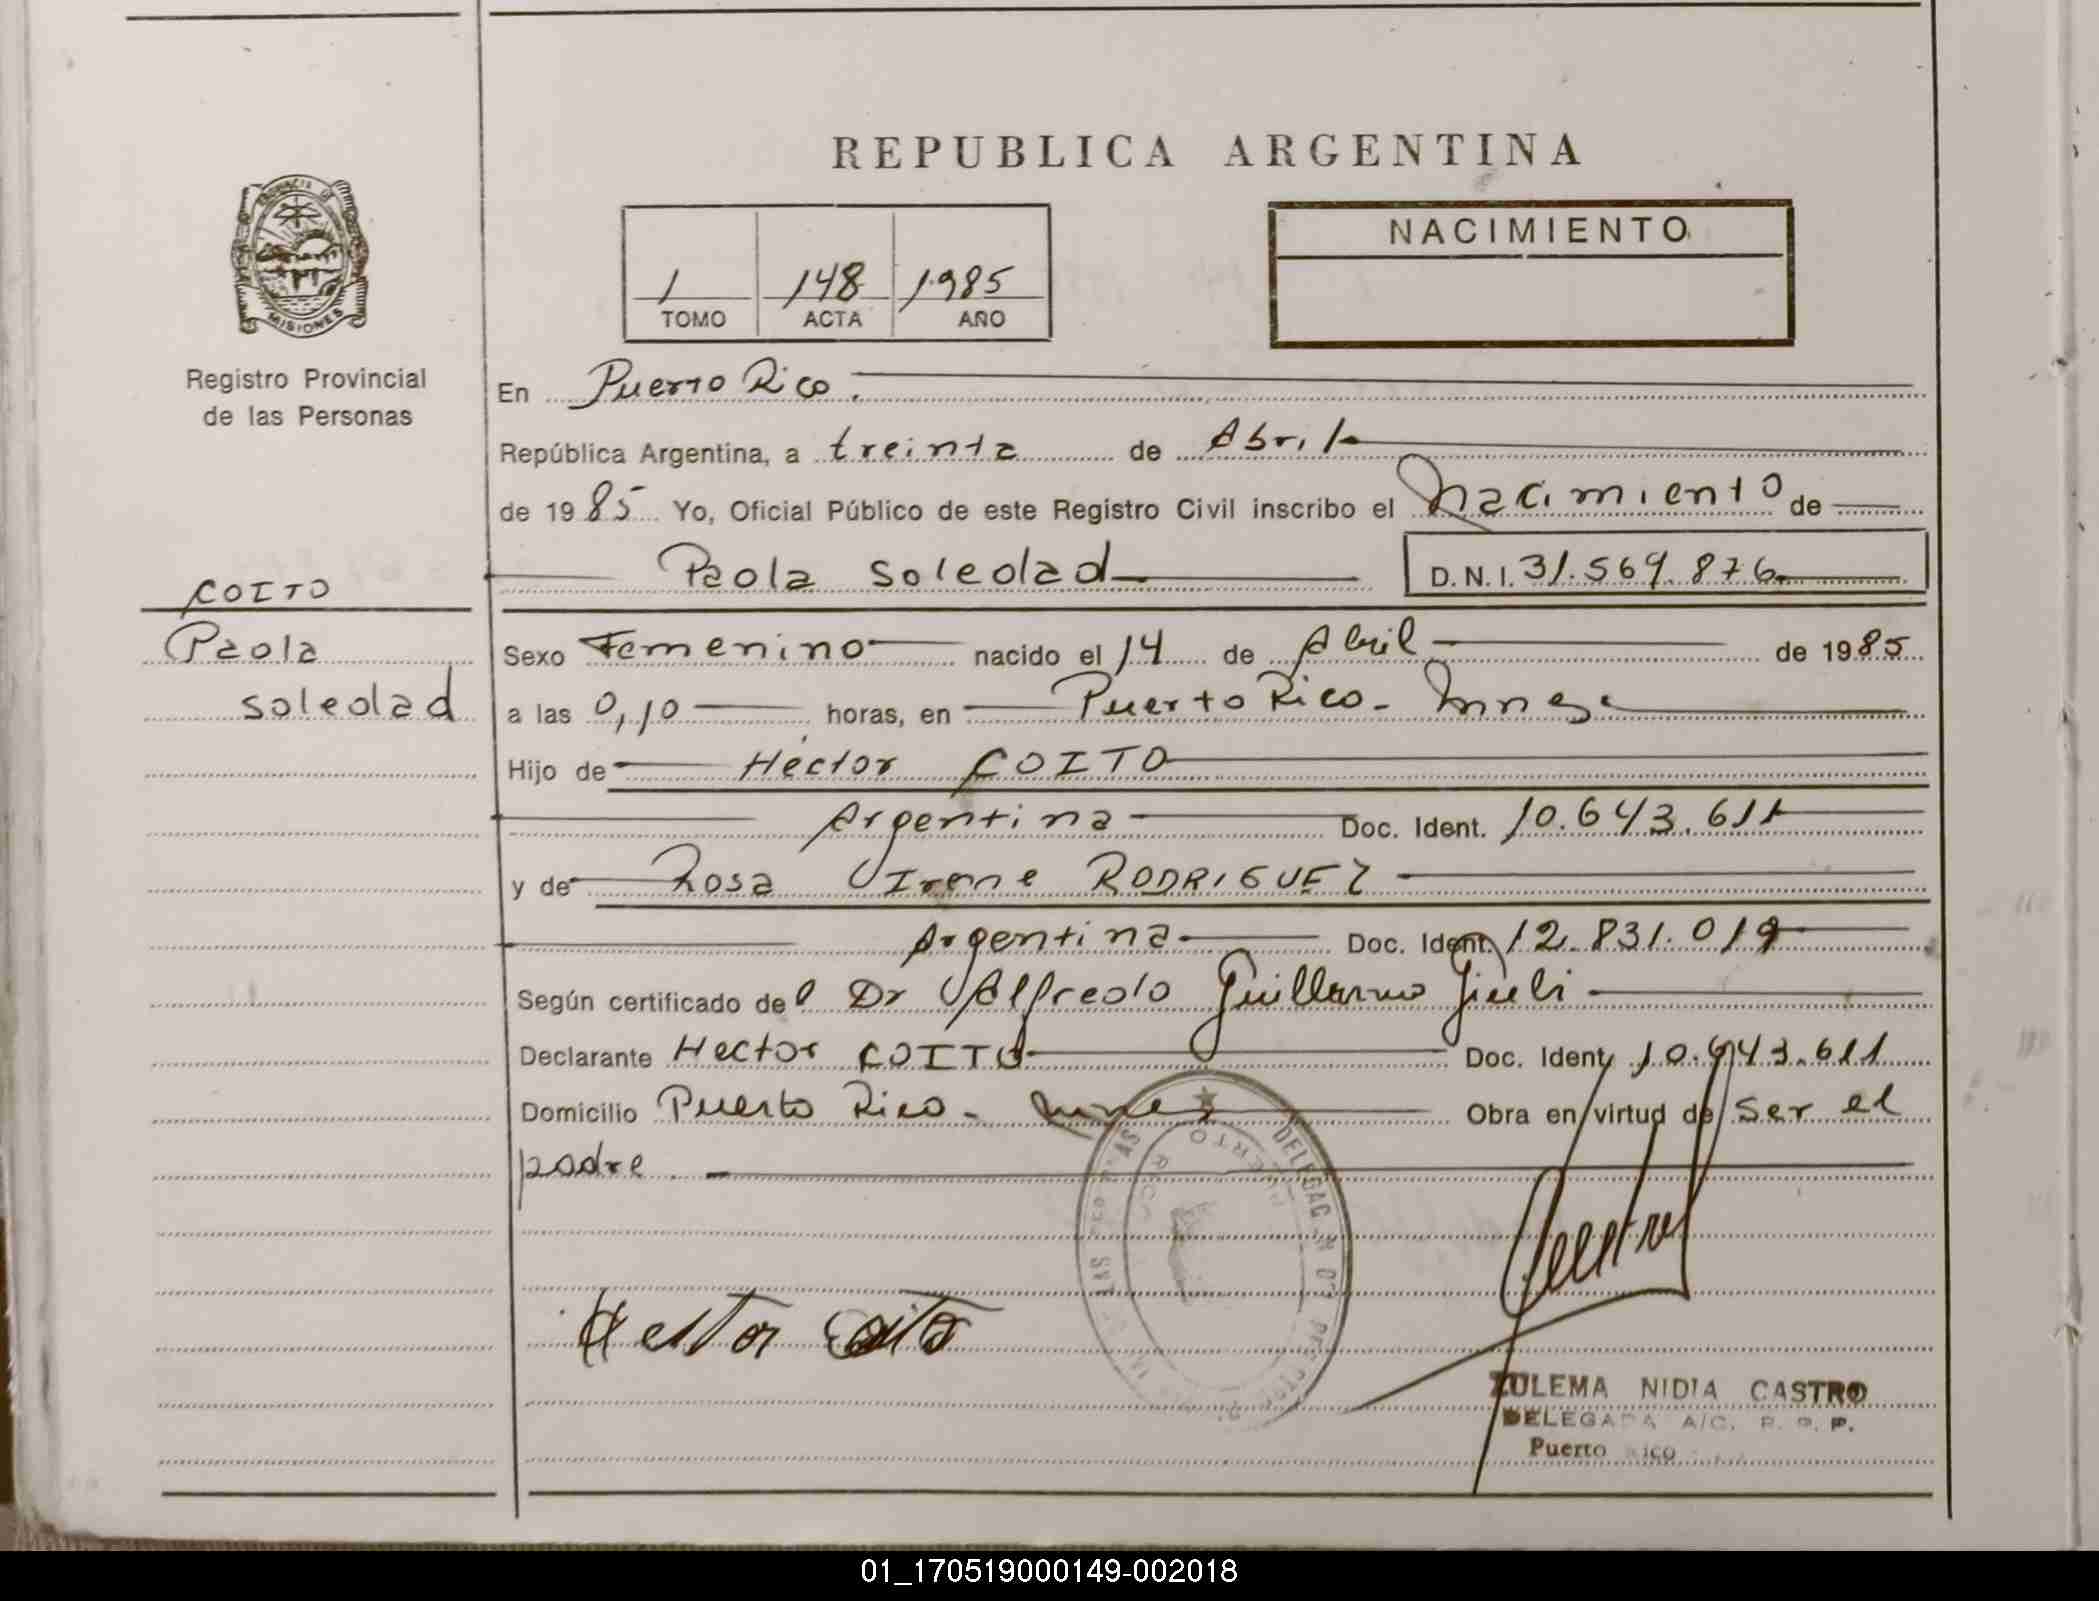 REPUBLICA ARGENTINA
PROVINCIA DE
MISIONES
Registro Provincial
de las Personas
1 148 1985
TOMO ACTA AÑO
NACIMIENTO
En Puerto Rico.
República Argentina, a treinta de Abril
de 1985 Yo, Oficial Público de este Registro Civil inscribo el Nacimiento de
Paola Soledad D.N.I. 31.569.876
COITO
Paola
Soledad
Sexo Femenino nacido el 14 de Abril de 1985
a las 0,10 horas, en Puerto Rico-
Hijo de Héctor COITO
Argentina Doc. Ident. 10.643.611
y de Rosa Irene RODRIGUEZ
Argentina Doc. Ident. 12.831.019
Según certificado del Dr Alfredo Guillermo
Declarante Hector COITO Doc. Ident. 10.643.611
Domicilio Puerto Rico- Obra en virtud de ser el
padre
PUERTO RICO
Hector Coito
ZULEMA NIDIA CASTRO
DELEGADA A/C. R. P. P.
Puerto Rico
01_170519000149-002018